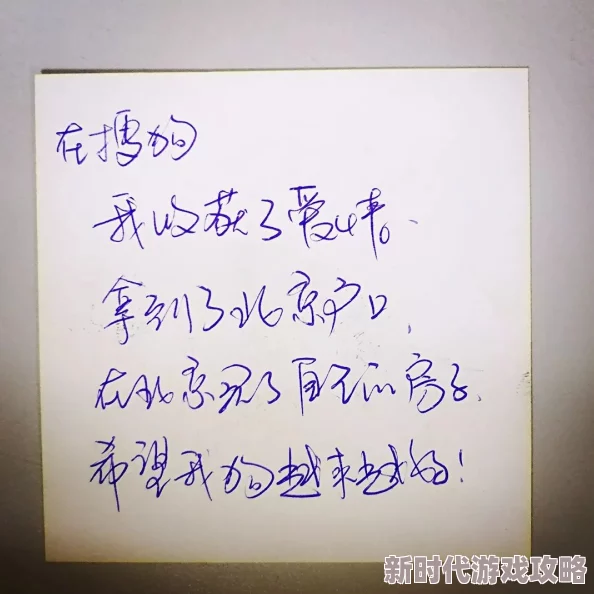 在搜狗
我收获了爱情。
拿到了北京户口,
在北京买了自己的房子.
希望我狗越来越好!
新时代游戏攻略